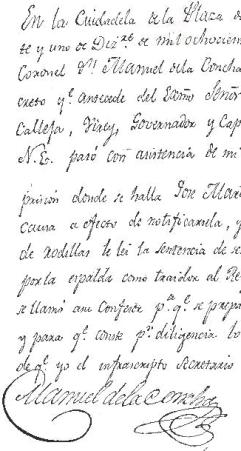 En la Ciudadela de la Plaza de
te y uno de Dizre de mil ochocien
Coronel Dn Manuel dela Concha
creto qe antecede del Exmo Señor
Calleja, Virey, Governador y Cap
N.E. pasó con asistencia de mi
prision donde se halla Jose Mar
causa a efecto de notificarsela, y
de rodillas le lei la sentencia de se
por la espalda como traidor al Re
se llamó a un Confesor pa qe se prepa
y para qe conste pr diligencia lo
de qe yo el infrascripto Secretario
Manuel dela Concha